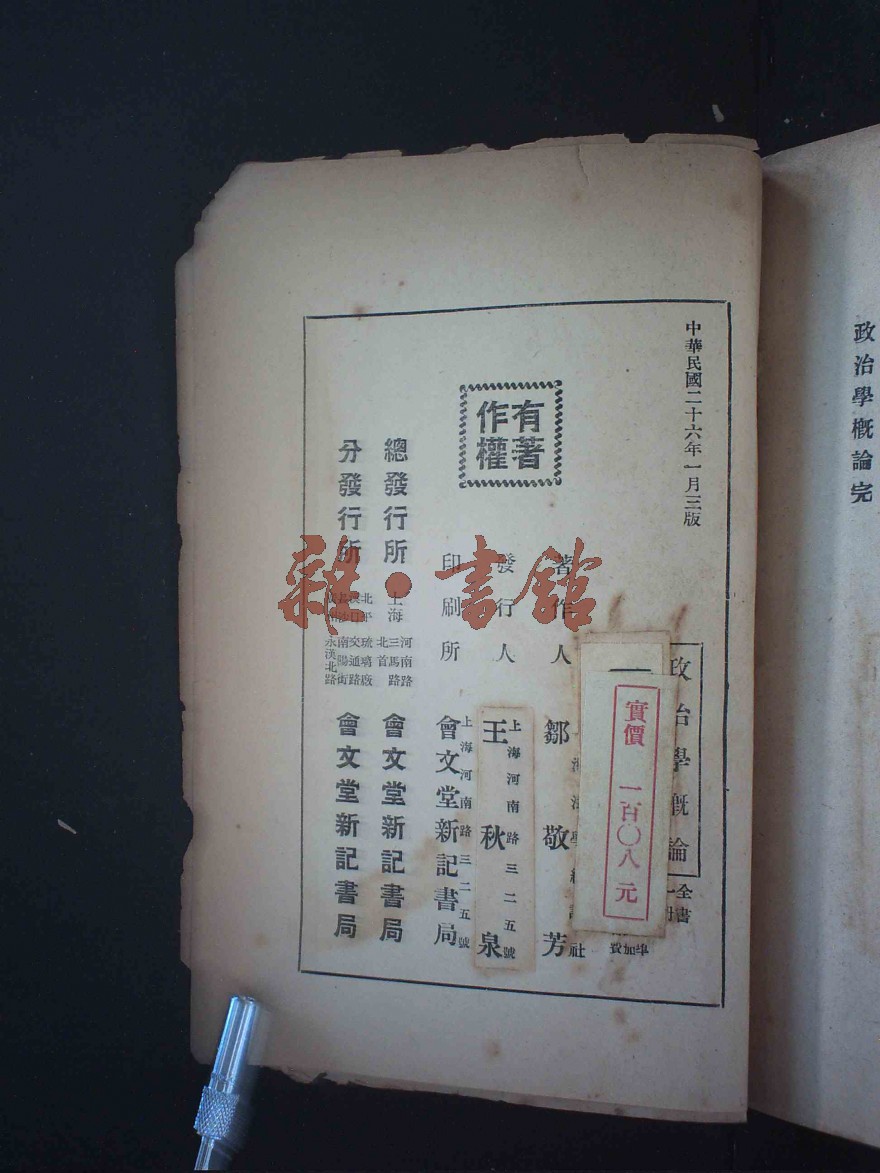 政治學概論完
中華民國二十六年一月三版
政治學概論
全書一冊
實價 一百〇八元
著作人 鄒敬芳
發行人 王秋泉
上海河南路三二五號
印刷所 會文堂新記書局
上海河南路三二五號
有著
作權
總發行所 上海 河南路三馬路北首 會文堂新記書局
分發行所 北平琉璃廠 漢口交通路 南陽街 永漢北路 會文堂新記書局
雜·書館